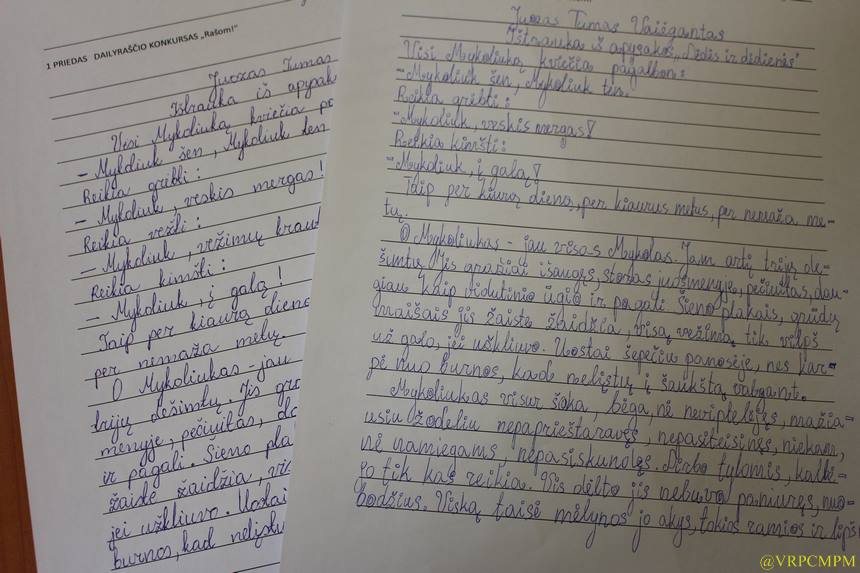 1 PRIEDAS DAILYRAŠČIO KONKURSAS „Rašom!“
Juozas Tumas
Ištrauka iš apysak
Visi Mykoliuką kviečia pa
– Mykoliuk šen, Mykoliuk ten
Reikia grėbti:
– Mykoliuk, veskis mergas!
Reikia vežti:
– Mykoliuk, vežimų kraut
Reikia kimšti:
– Mykoliuk, į galą!
Taip per kiaurą dieną
per nemaža metų.
O Mykoliukas – jau
trijų dešimtų. Jis gra
menyje, pečiuitas, da
ir pagali. Šieno pla
žaiste žaidžia, vis
jei užkliuvo. Uostai
burnos, kad nelįstų
Juozas Tumas Vaižgantas
Ištrauka iš apysakos „Dėdės ir dėdienės“
Visi Mykoliuką kviečia pagalbon:
– Mykoliuk šen, Mykoliuk ten.
Reikia grėbti:
– Mykoliuk, veskis mergas!
Reikia kimšti:
– Mykoliuk, į galą!
Taip per kiurą dieną, per kiaurus metus, per nemaža me-
tų.
O Mykoliukas – jau visas Mykolas. Jam arti trijų de-
šimtų. Jis gražiai išaugęs, storas juosmenyje, pečiuitas, dau-
giau kaip vidutinio ūgio ir pagali. Šieno plakais, grūdų
maišais jis žaiste žaidžia, visą vežimą tik viloš
už galo, jei užkliuvo. Uostai šepečiu panosėje, nes kar-
pė nuo burnos, kad nelįstų į šaukštą valgant.
Mykoliukas visur šoka, bėga, nė neviptelėjęs, mažia-
usiu žodeliu nepaprieštaravęs, nepasiteisinęs, niekam,
nė namiegams, nepasiskundęs. Dirbo tylomis, kalbė-
jo tik kas reikia. Vis dėlto jis nebuvo paniuręs, nuo-
bodžius. Viską taisė mėlynos jo akys, tokios ramios ir lipš
@VRPCMPM